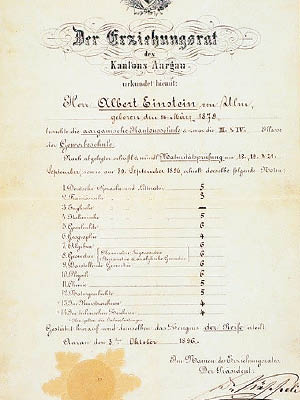 Der Erziehungsrat
des
Kantons Aargau
urkundet hiemit:
Herr Albert Einstein von Ulm,
geboren den 14. März 1879,
besuchte die aargauische Kantonsschule & zwar die III. & IV. Klasse
der Gewerbeschule.
Nach abgelegter schriftl. & mündl. Maturitätsprüfung am 18., 19. & 21.
September, sowie am 30. September 1896, erhielt derselbe folgende Noten:
1. Deutsche Sprache und Litteratur 5
2. Französische 3
3. Englische —
4. Italienische 5
5. Geschichte 6
6. Geographie 4
7. Algebra 6
8. Geometrie (Planimetrie, Trigonometrie, Stereometrie & analytische Geometrie) 6
9. Darstellende Geometrie 6
10. Physik 6
11. Chemie 5
12. Naturgeschichte 5
13. Im Kunstzeichnen 4
14. Im technischen Zeichnen 4
Gestützt hierauf wird demselben das Zeugnis der Reife erteilt.
Aarau den 3ten Oktober 1896.
Im Namen des Erziehungsrates,
Der Präsident: